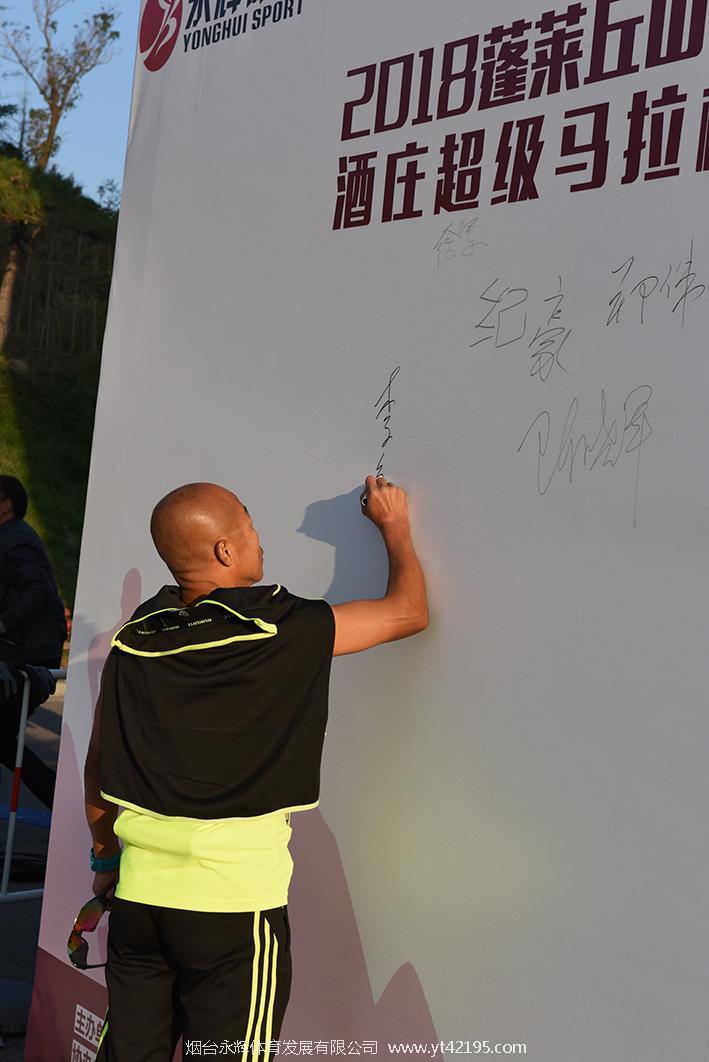 YONGHUI SPORT
2018蓬莱丘山
酒庄超级马拉
纪豪
李
主办单
协办
烟台永辉体育发展有限公司 www.yt42195.com